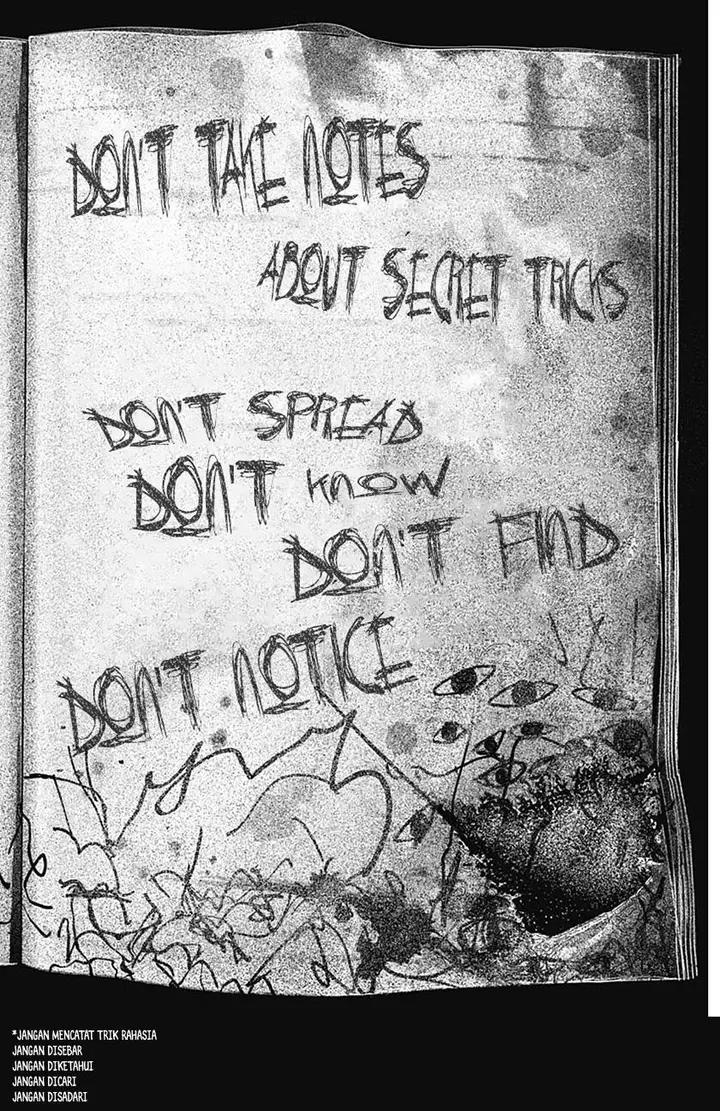 DON'T TAKE NOTES
ABOUT SECRET TRICKS
DON'T SPREAD
DON'T KNOW
DON'T FIND
DON'T NOTICE
*JANGAN MENCATAT TRIK RAHASIA
JANGAN DISEBAR
JANGAN DIKETAHUI
JANGAN DICARI
JANGAN DISADARI